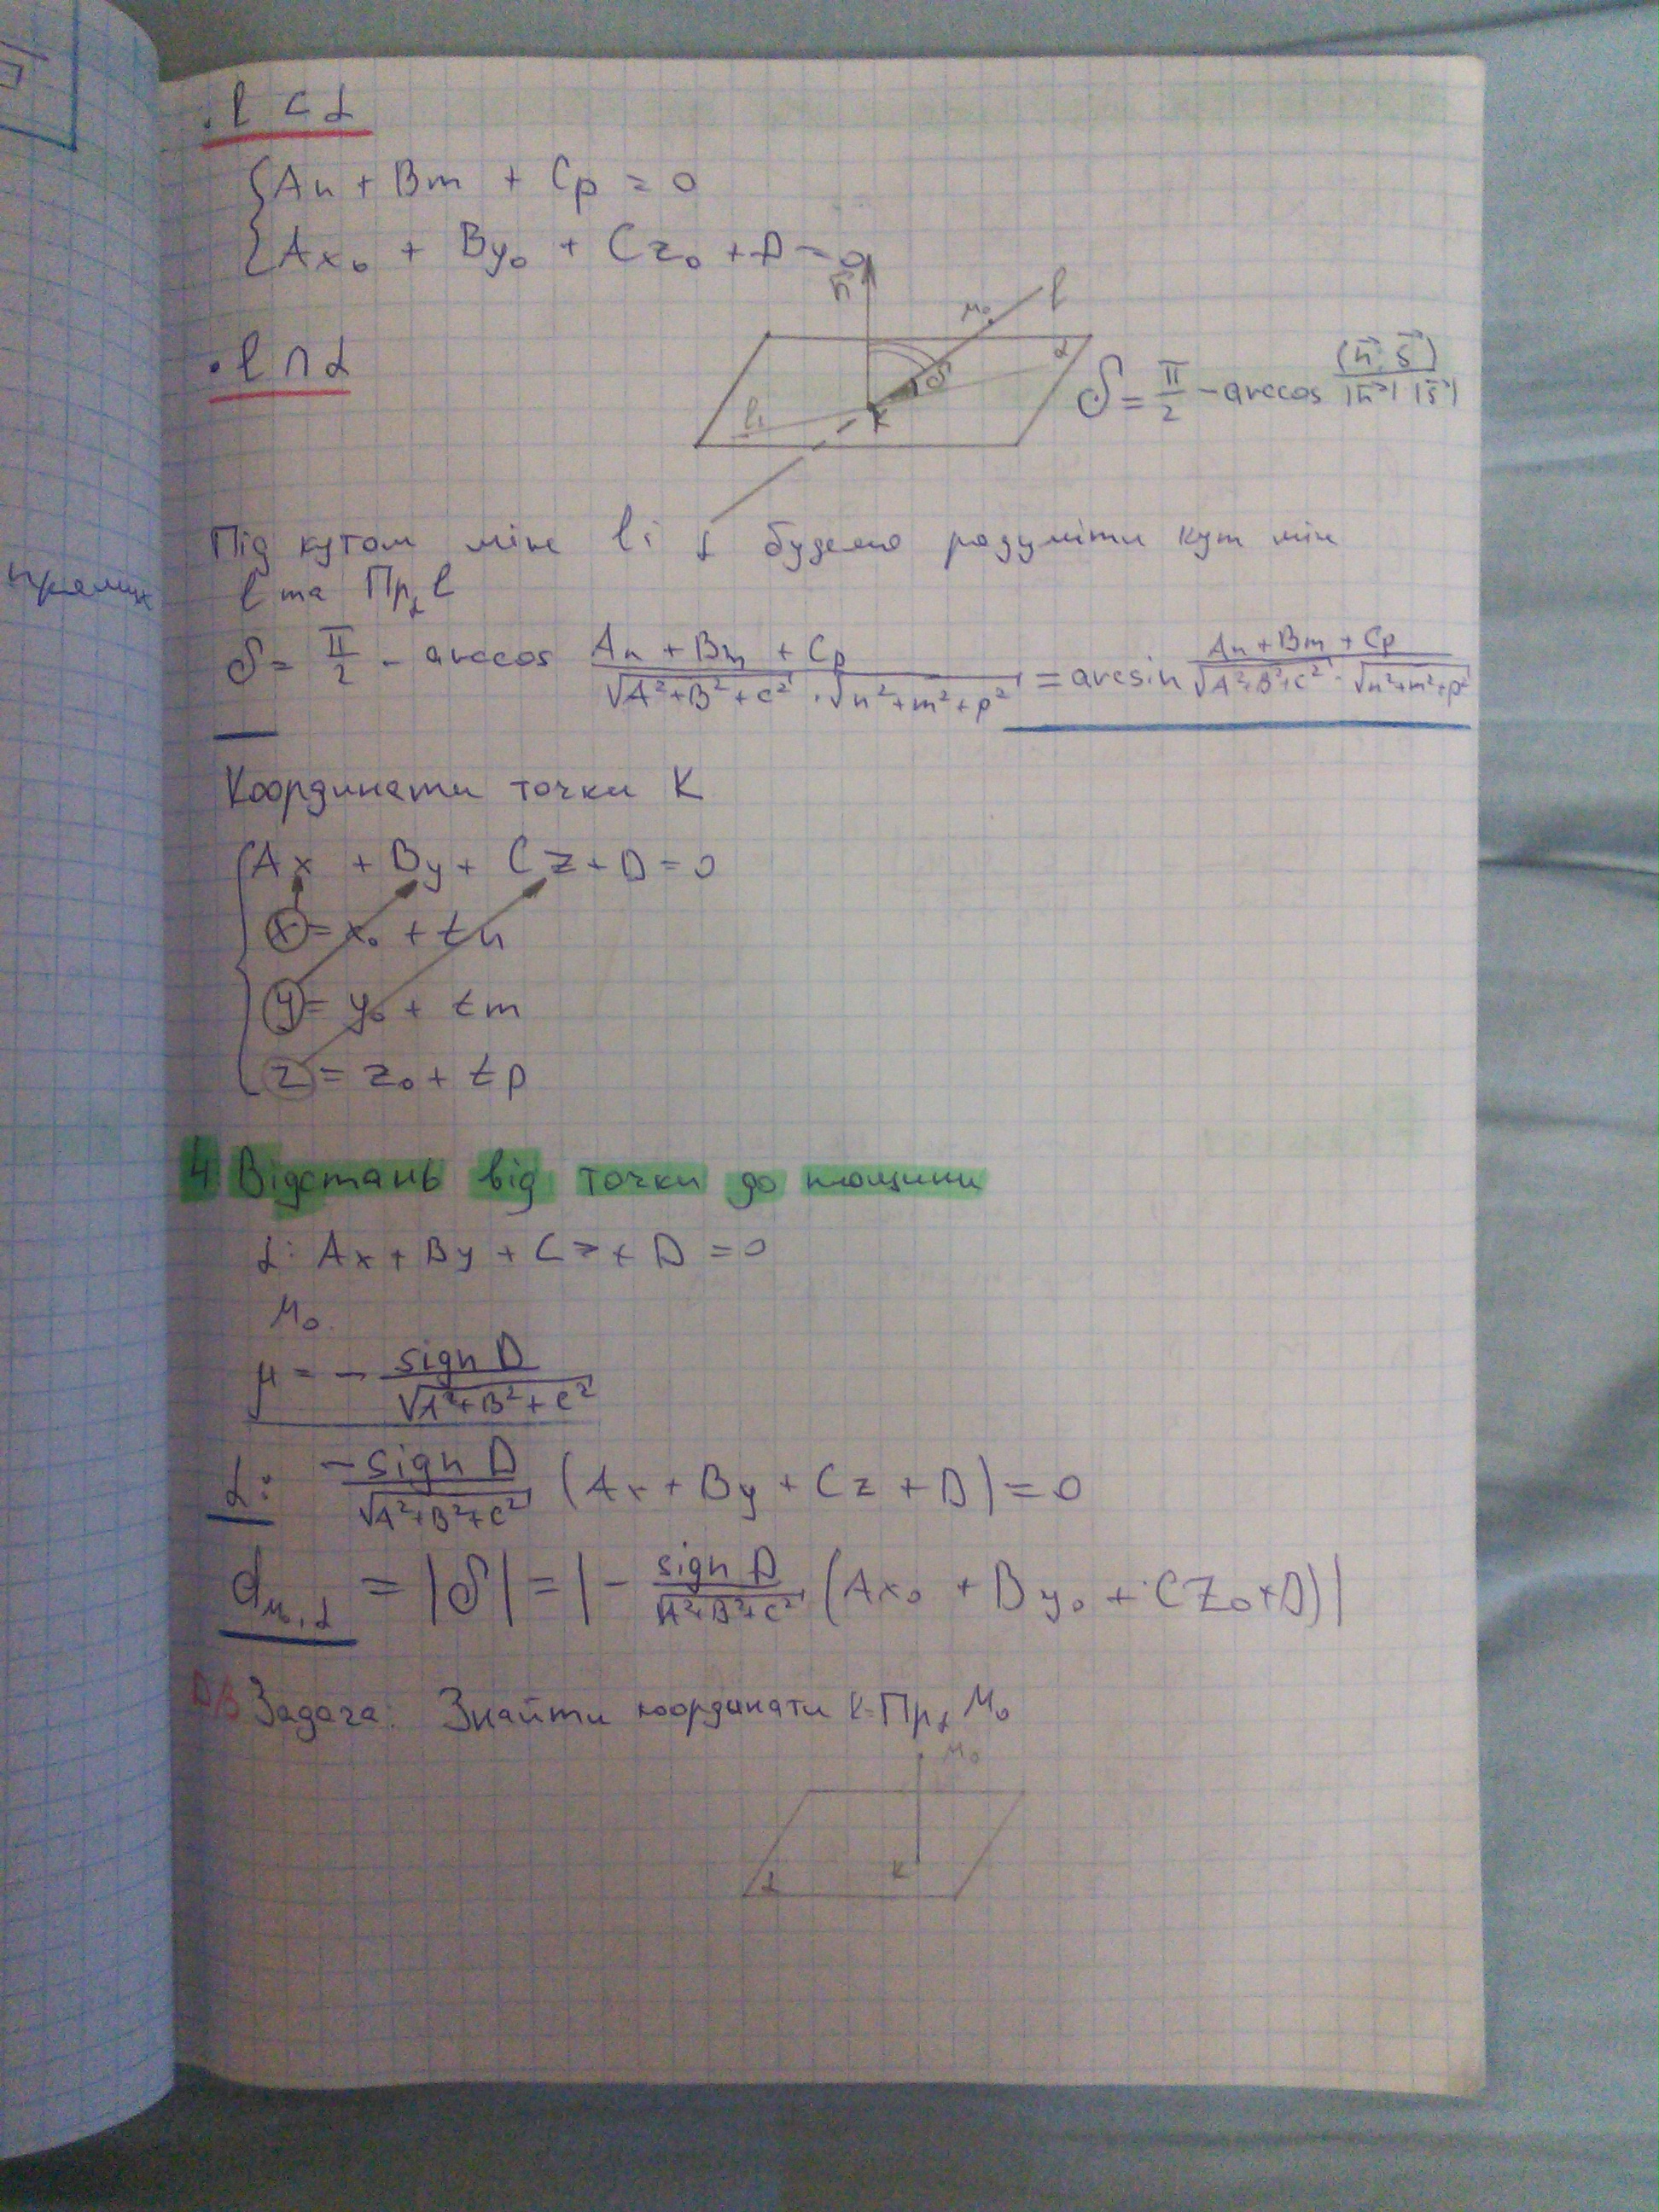 . l ⊂ α
{ An + Bm + Cp = 0
{ Ax₀ + By₀ + Cz₀ + D = 0
· l ∩ α
n⃗
M₀
l
α
δ
l₁
K
δ = π/2 - arccos (n⃗, s⃗)/|n⃗| |s⃗|
Під кутом між l і α будемо розуміти кут між
l та Пр_α l
δ = π/2 - arccos (An + Bm + Cp)/(√A²+B²+C² · √n²+m²+p²) = arcsin (An + Bm + Cp)/(√A²+B²+C² · √n²+m²+p²)
Координати точки K
{ Ax + By + Cz + D = 0
x = x₀ + tn
y = y₀ + tm
z = z₀ + tp
4 Відстань від точки до площини
α: Ax + By + Cz + D = 0
M₀.
μ = - sign D/√A²+B²+C²
α: -sign D/√A²+B²+C² (Ax + By + Cz + D) = 0
d_M₀,α = |δ| = |- sign D/√A²+B²+C² (Ax₀ + By₀ + Cz₀ + D)|
Задача: Знайти координати K=Пр_α M₀
M₀
K
α
прямих